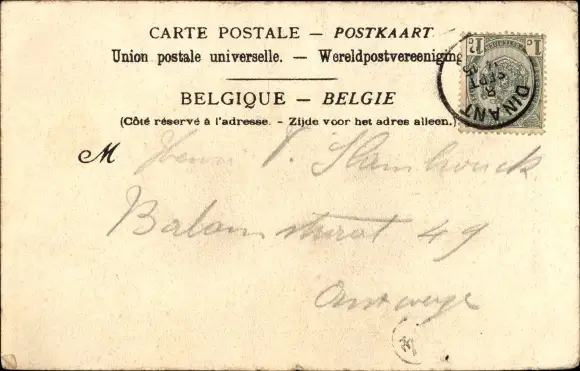 CARTE POSTALE — POSTKAART
Union postale universelle. — Wereldpostvereeniging
BELGIQUE — BELGIE
(Côté réservé à l'adresse. - Zijde voor het adres alleen.)
M Henri V.
Balanstraat 49
Antwerpe
DINANT
SEPT